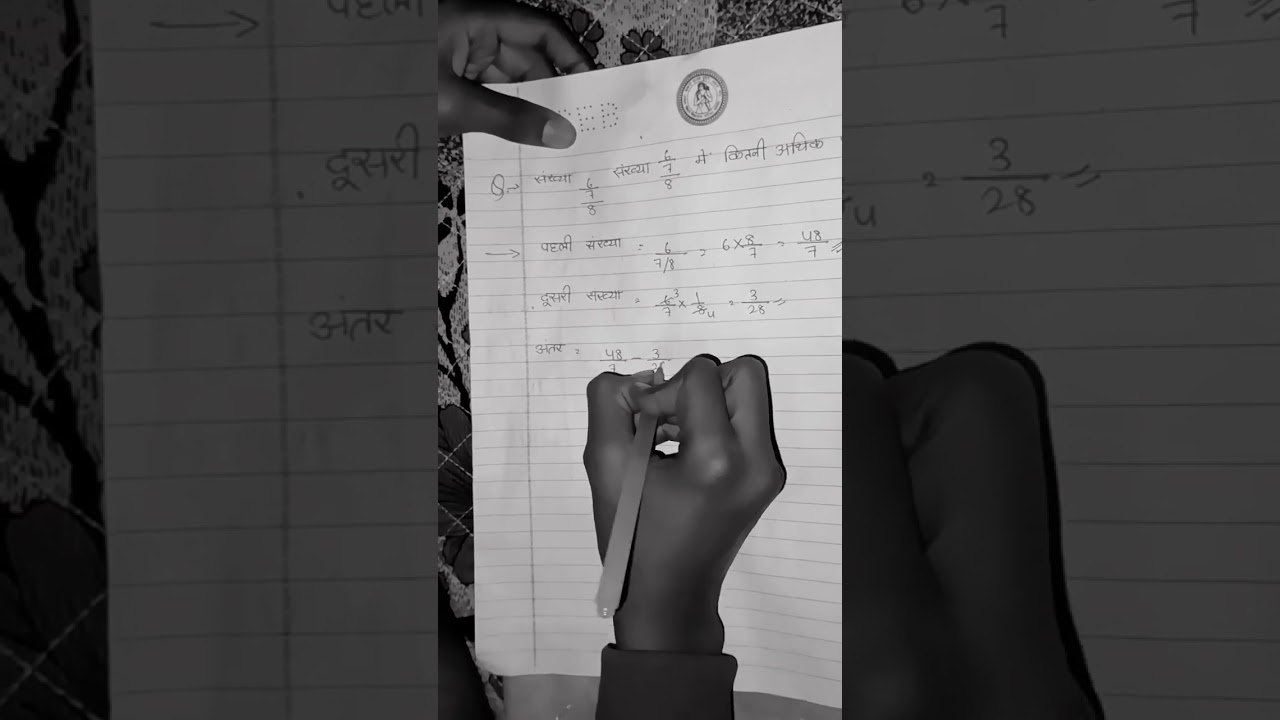 Q.→ संख्या 6/7/8 संख्या 6/7/8 में कितनी अधिक
→ पहली संख्या = 6/7/8 = 6×8/7 = 48/7
दूसरी संख्या = 6³/7 × 1/8₄ = 3/28
अंतर = 48/7 - 3/28